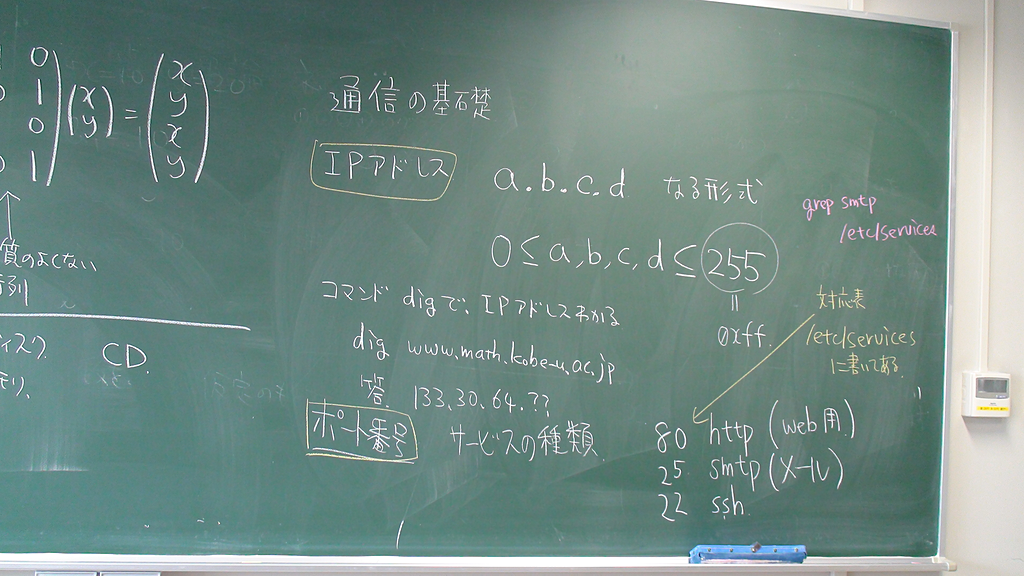 0
1
0
1
(x y) = (x y x y)
質のよくない
行列
ィスク
CD
通信の基礎
IPアドレス
a.b.c.d なる形式
0≤a,b,c,d≤255
=
0xff
コマンド digで、IPアドレスわかる
dig www.math.kobe-u.ac.jp
答 133.30.64.??
ポート番号
サービスの種類
80 http (web用)
25 smtp (メール)
22 ssh
grep smtp
/etc/services
対応表
/etc/services
に書いてある